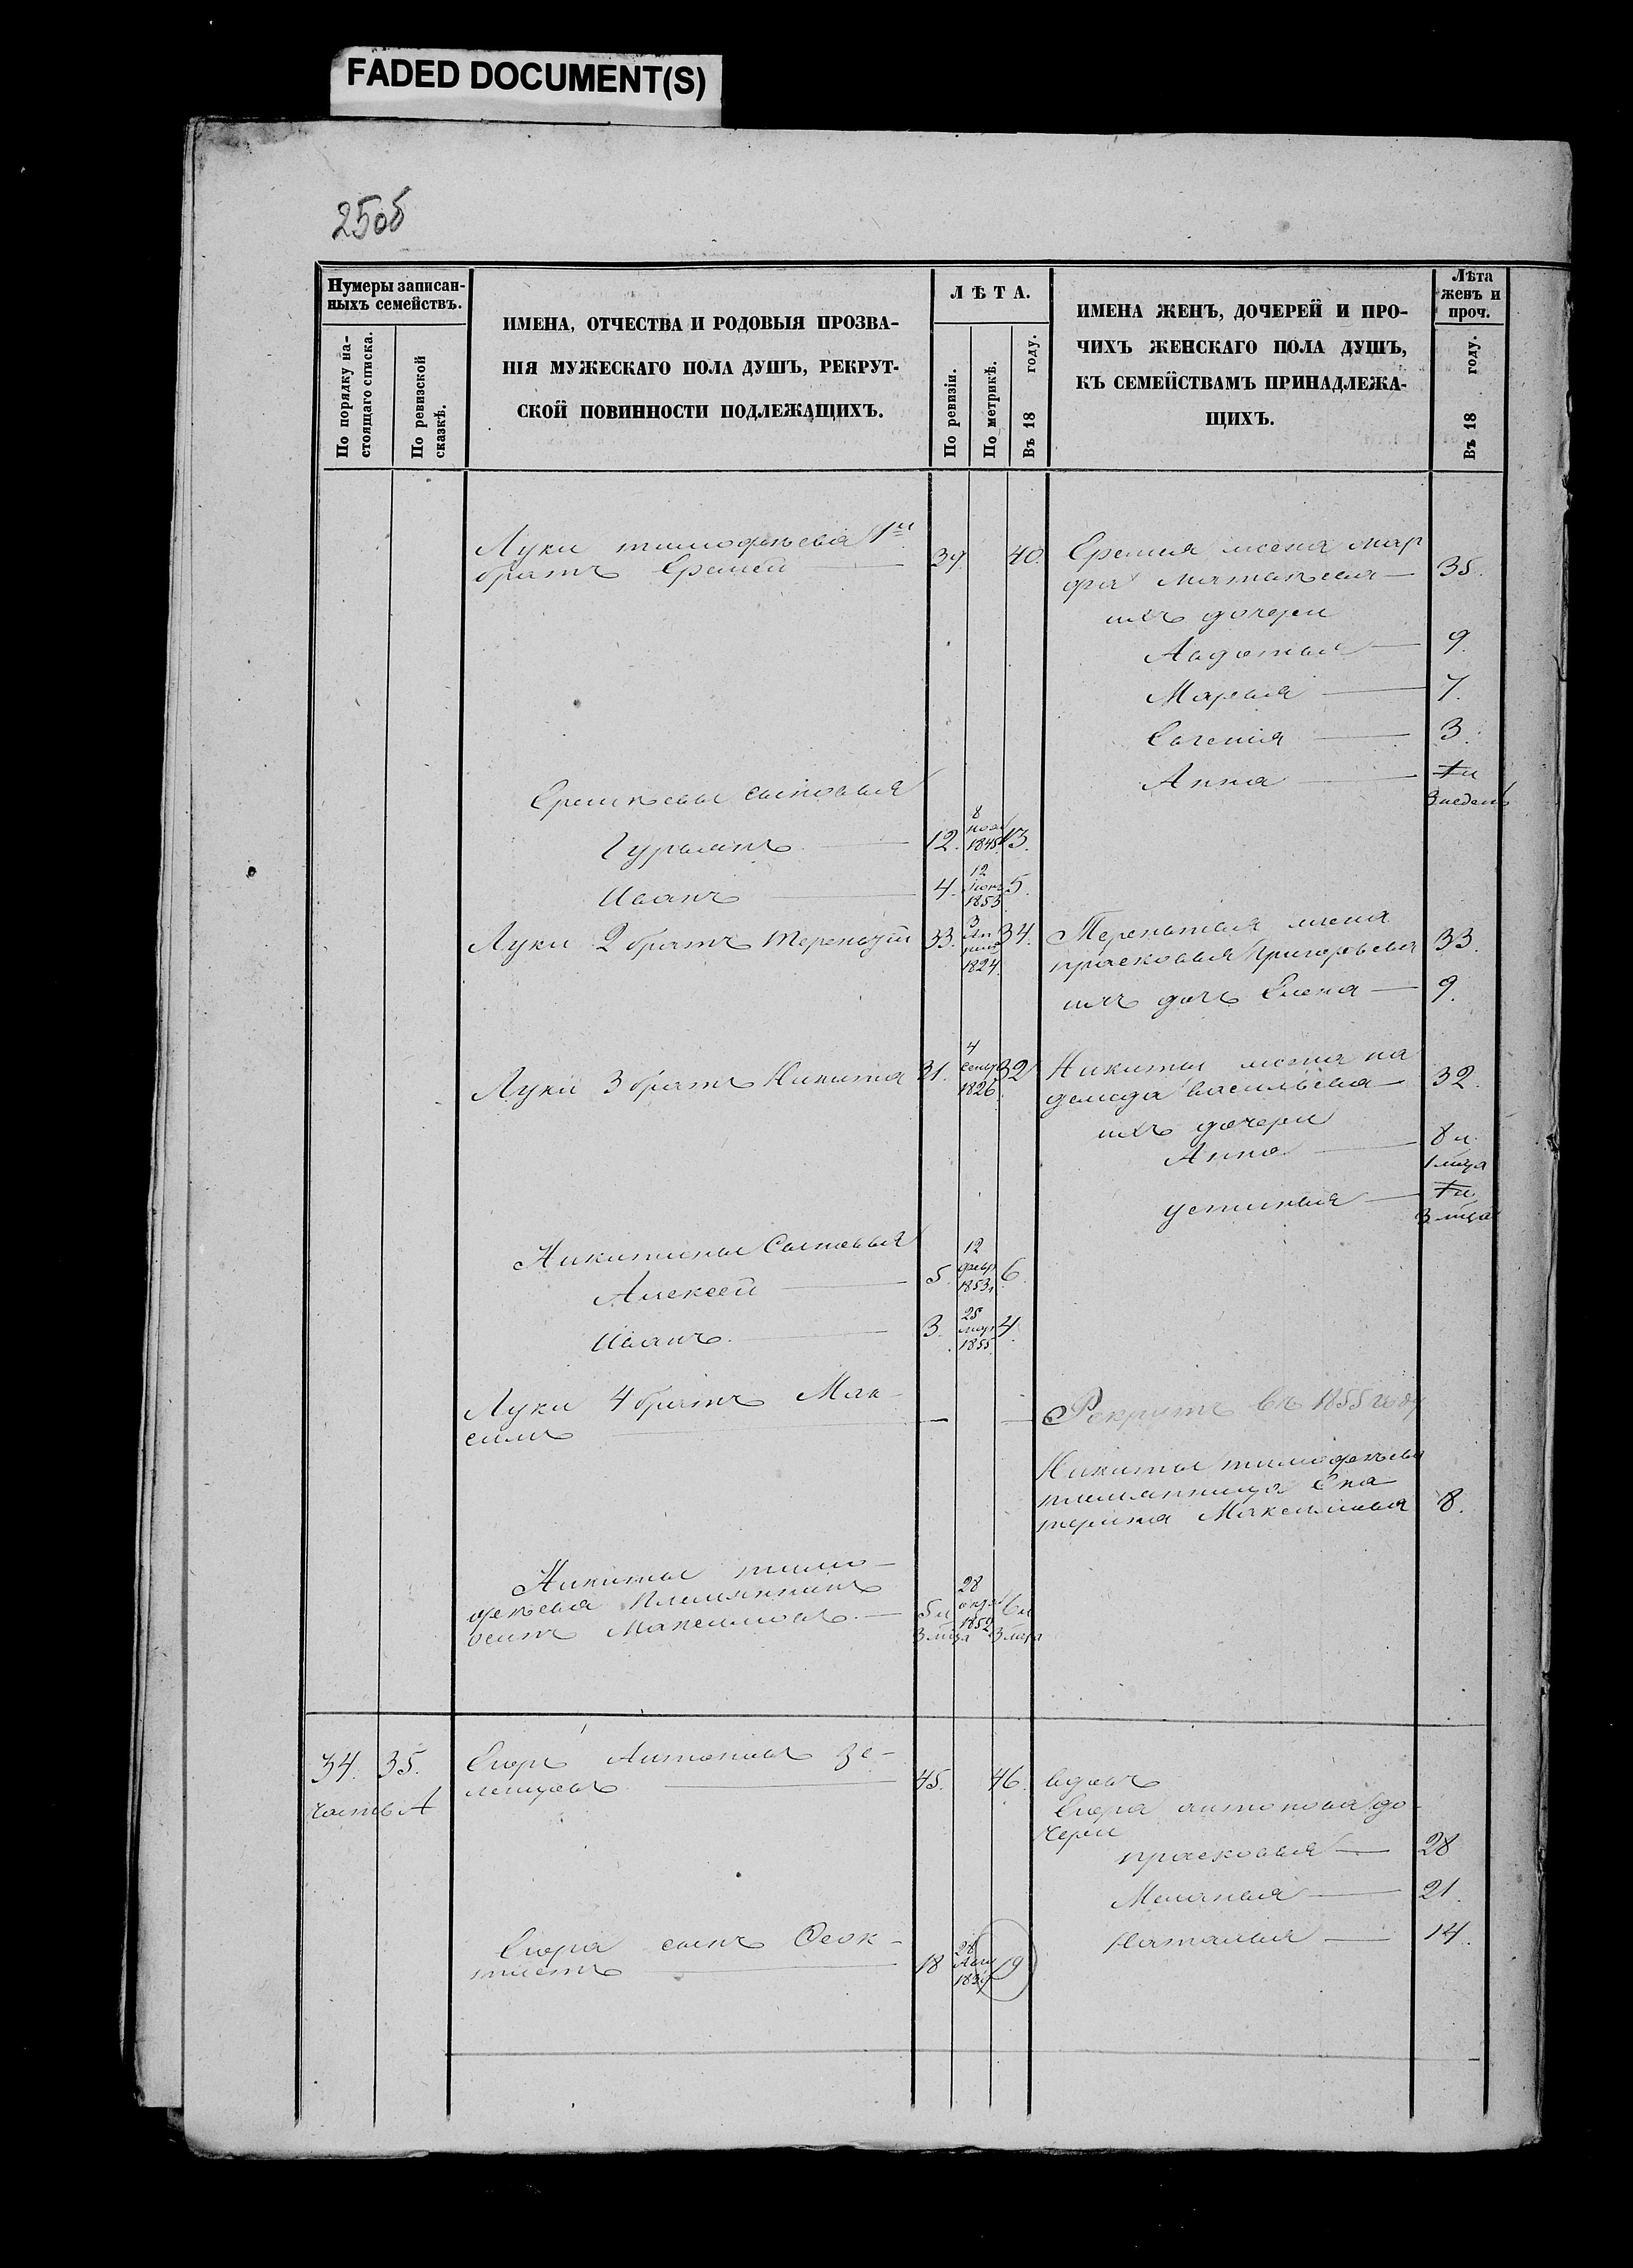 FADED DOCUMENT(S)
25об
Нумеры записан-
ныхъ семействъ.
По порядку на-
стоящаго списка.
По ревизской
сказкѣ.
ИМЕНА, ОТЧЕСТВА И РОДОВЫЯ ПРОЗВА-
НІЯ МУЖЕСКАГО ПОЛА ДУШЪ, РЕКРУТ-
СКОЙ ПОВИННОСТИ ПОДЛЕЖАЩИХЪ.
ЛѢТА.
По ревизіи.
По метрикѣ.
Въ 18 году.
ИМЕНА ЖЕНЪ, ДОЧЕРЕЙ И ПРО-
ЧИХЪ ЖЕНСКАГО ПОЛА ДУШЪ,
КЪ СЕМЕЙСТВАМЪ ПРИНАДЛЕЖА-
ЩИХЪ.
Лѣта
женъ и
проч.
Въ 18 году.
Луки тимофѣева 1й
братъ Еремей 39 40.
Еремѣя жена мар
фа Матвѣева 35.
ихъ дочери
Авдотья 9.
Марья 7.
Евгенія 3.
Анна
3 недель
Еремѣевы сыновья
Гурьянъ 12. 8 нояб 1845 13.
Иванъ 4. 12 1853 5.
Луки 2 братъ терентій 33. 3 Ап 1824. 34.
Терентья жена
прасковья Григорьева 33.
ихъ дочь Елена 9.
Луки 3 братъ Никита 31. 4 сент 1826. 32
Никиты жена на
дежда васильева 32.
ихъ дочери
Анна 8 м.
1 мца
устинья
3 мца
Никитины Сыновья
Алексей 5. 12 февр 1853. 6.
Иванъ 3. 25 мар 1855. 4.
Луки 4 братъ Мак-
симъ
Рекрутъ въ 1855 году
Никиты тимофѣева
племянница Ека
терина Максимова 8.
Никиты тимо-
фѣева племянникъ
Максимовъ 5 28 окт 1852 6
3 мца 3 мца
34. 35.
часть А
Егоръ Антоновъ Зе-
ленцовъ 45. 46.
вдовъ
Егора антонова до-
чери
прасковья 28
Маланья 21.
Наталья 14.
Егора сынъ Феок-
тистъ 18 28 19